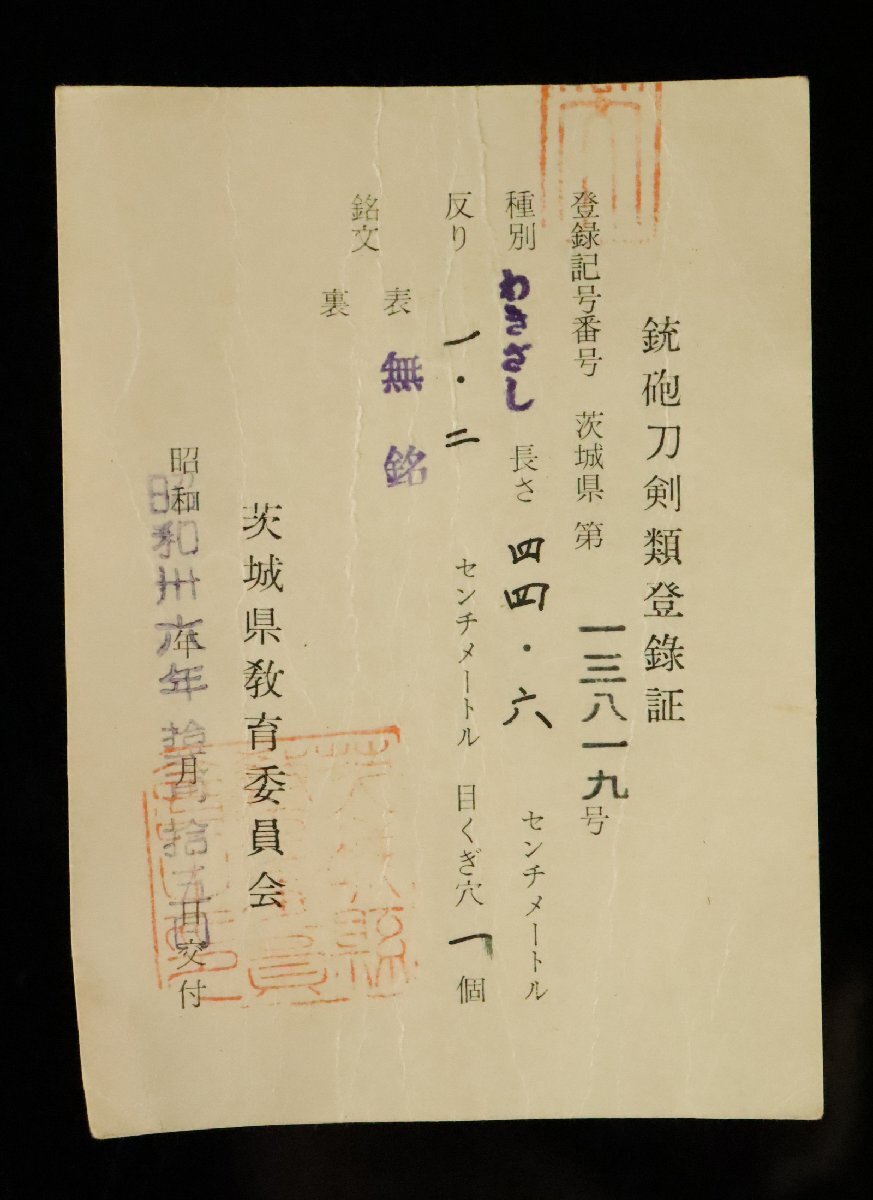 銃砲刀剣類登録証
登録記号番号 茨城県 第 一三八一九 号
種別 わきざし 長さ 四四・六 センチメートル
反り 一・二 センチメートル 目くぎ穴 一 個
銘文
表 無銘
裏
茨城県教育委員会
昭和 年 月 日交付
昭和卅六年拾月拾五日